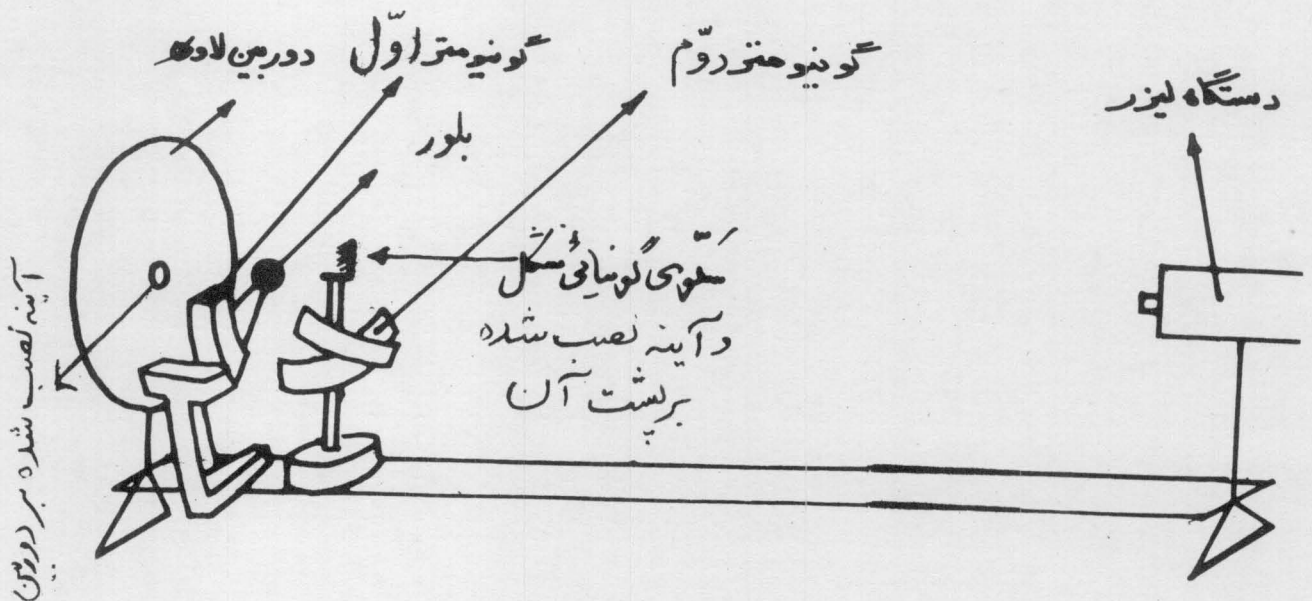 گونیومتر دوّم
گونیومتر اوّل
دوربین لاوه
دستگاه لیزر
بلور
سکّوی گونیائی شکل
و آینه نصب شده
بر پشت آن
آینه نصب شده بر دوربین